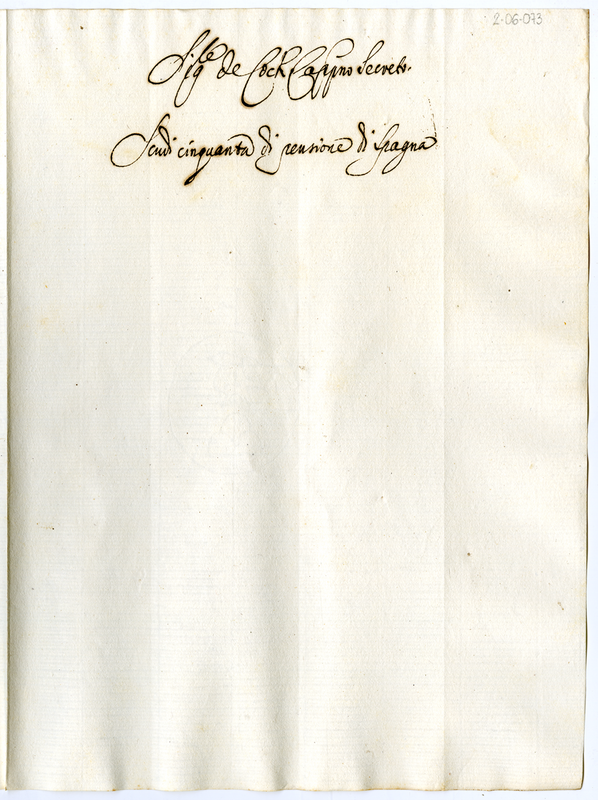 2-06-073
Sig.re de Cock Cappno Secreto.
Scudi cinquanta di pensione di spagna